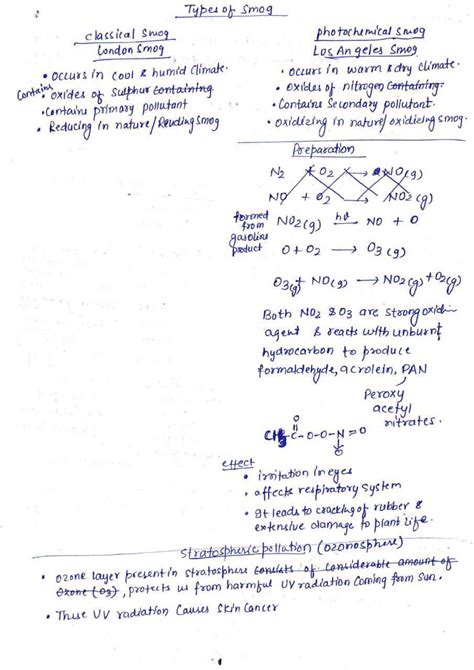 Types of Smog
classical Smog
London Smog
• occurs in cool & humid climate.
Contains • oxides of sulphur containing
• contains primary pollutant
• Reducing in nature/Reuding smog
photochemical smog
Los Angeles Smog
• occurs in warm & dry climate.
• oxides of nitrogen containing.
• Contains Secondary pollutant.
• oxidizing in nature/oxidizing smog.
Preparation
N2 + O2 → NO(g)
NO + O2 → NO2(g)
formed from gasoline product
NO2(g) hν → NO + O
O + O2 → O3(g)
O3(g) + NO(g) → NO2(g) + O2(g)
Both NO2 & O3 are strong oxidi-
agent & reacts with unburnt
hydrocarbon to produce
formaldehyde, acrolein, PAN
Peroxy
acetyl
nitrates.
O
CH3-C-O-O-N=O
O
effect
• irritation in eyes
• affects respiratory system
• It leads to cracking of rubber &
extensive damage to plant life.
Stratospheric pollution (ozonosphere)
• ozone layer present in stratosphere consists of considerable amount of
Ozone (O3), protects us from harmful UV radiation coming from sun.
• These UV radiation causes skin cancer